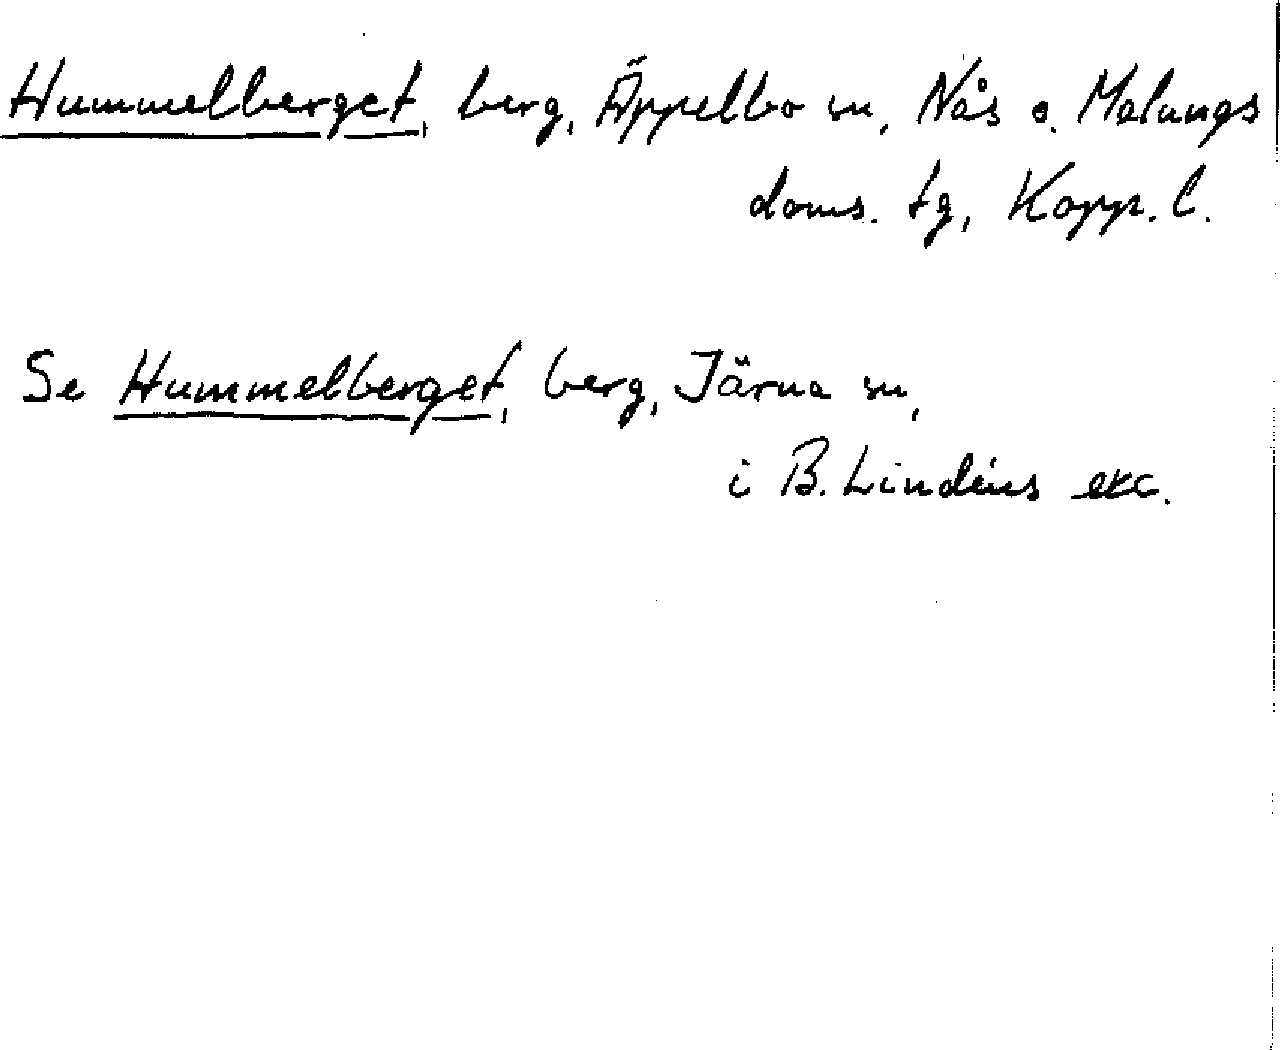 Hummelberget, berg, Äppelbo sn, Nås o. Malungs
doms. tg, Kopp. l.
Se Hummelberget, berg, Järna sn,
i B. Lindéns exc.